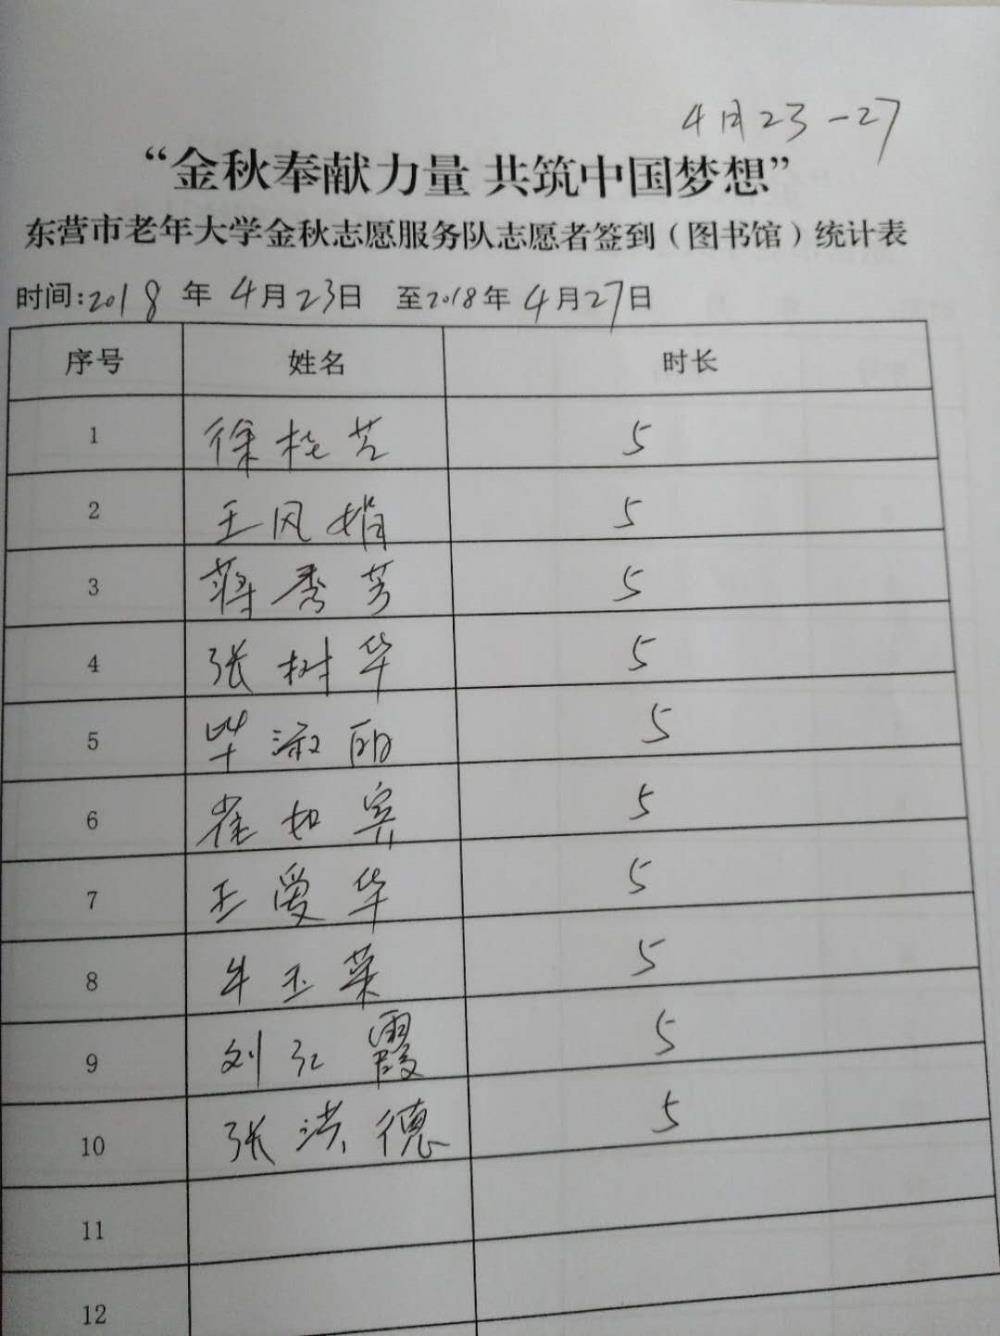 4月23-27
“金秋奉献力量 共筑中国梦想”
东营市老年大学金秋志愿服务队志愿者签到（图书馆）统计表
时间:2018年4月23日 至2018年4月27日
序号 姓名 时长
1 徐桂芝 5
2 王风娟 5
3 蒋秀芳 5
4 张树华 5
5 毕淑丽 5
6 崔如宾 5
7 王爱华 5
8 牛玉荣 5
9 刘红霞 5
10 张洪德 5
11
12